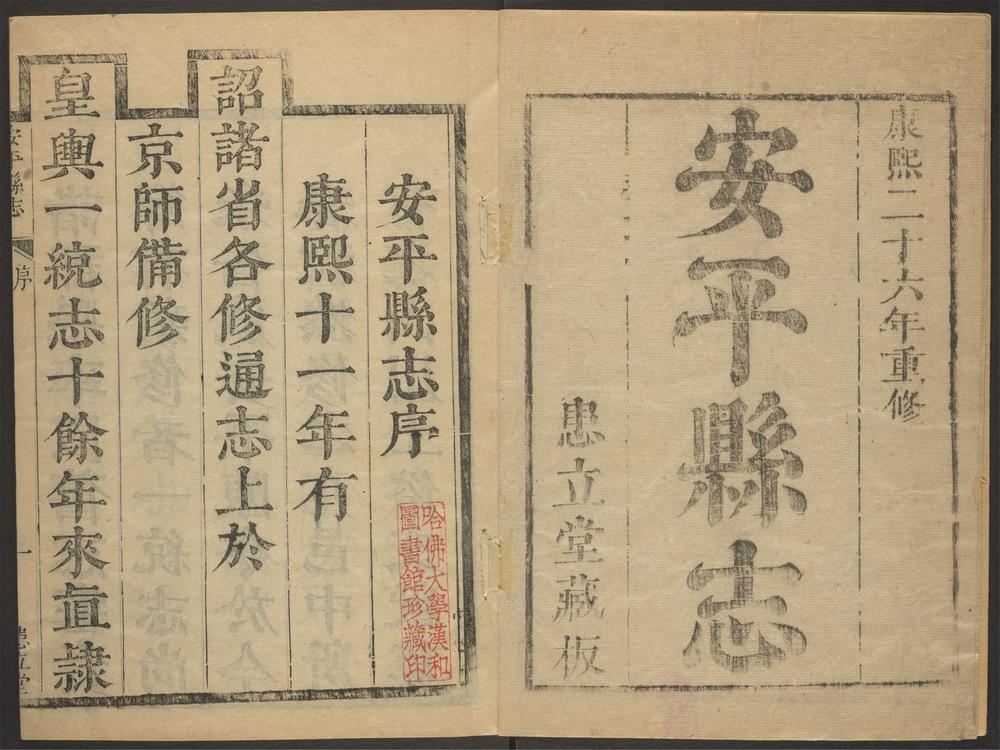 康熙二十六年重修
安平縣志
患立堂藏板
安平縣志序
康熙十一年有
詔諸省各修通志上於
京師備修
皇輿一統志十餘年來直隷
安平縣志
序
一
患立堂
哈佛大學漢和
圖書館珍藏印